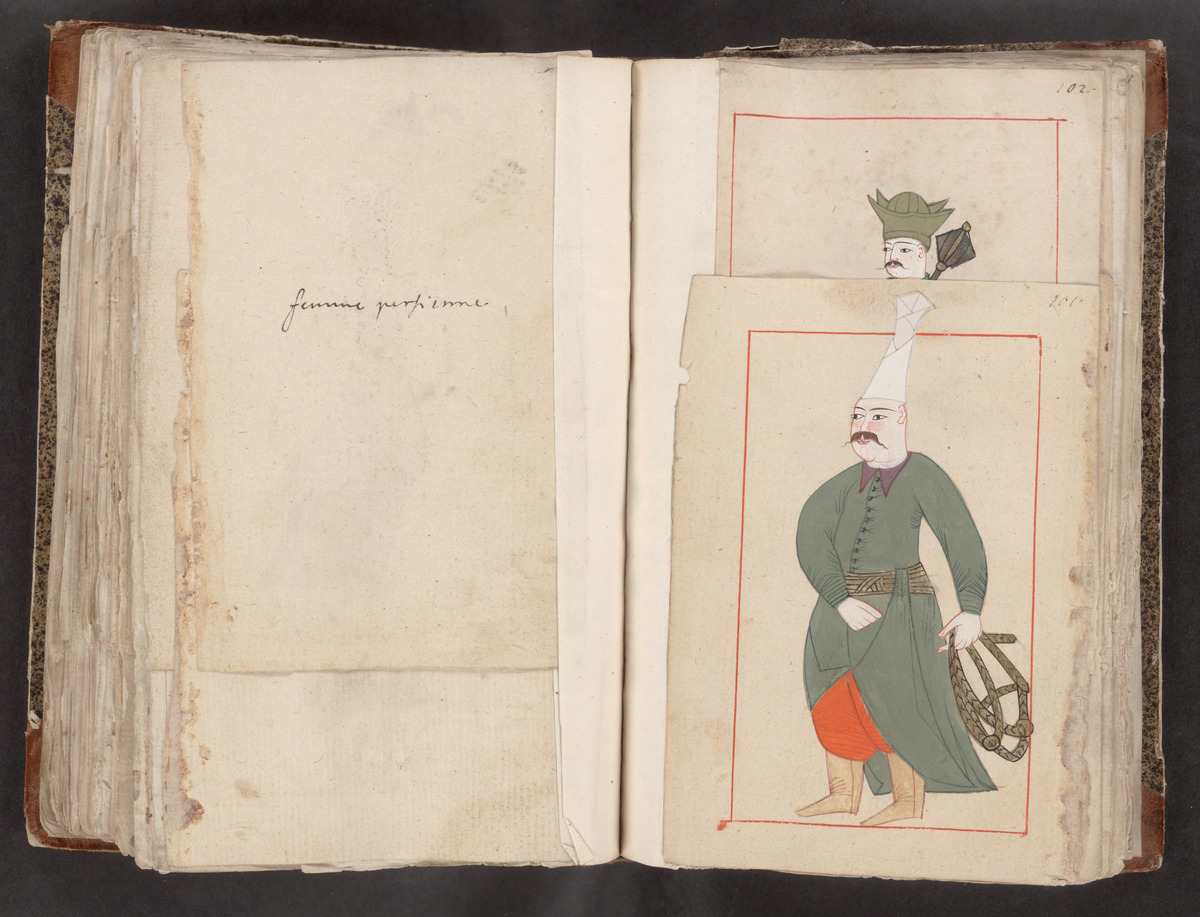 femme persienne.
102.
101.